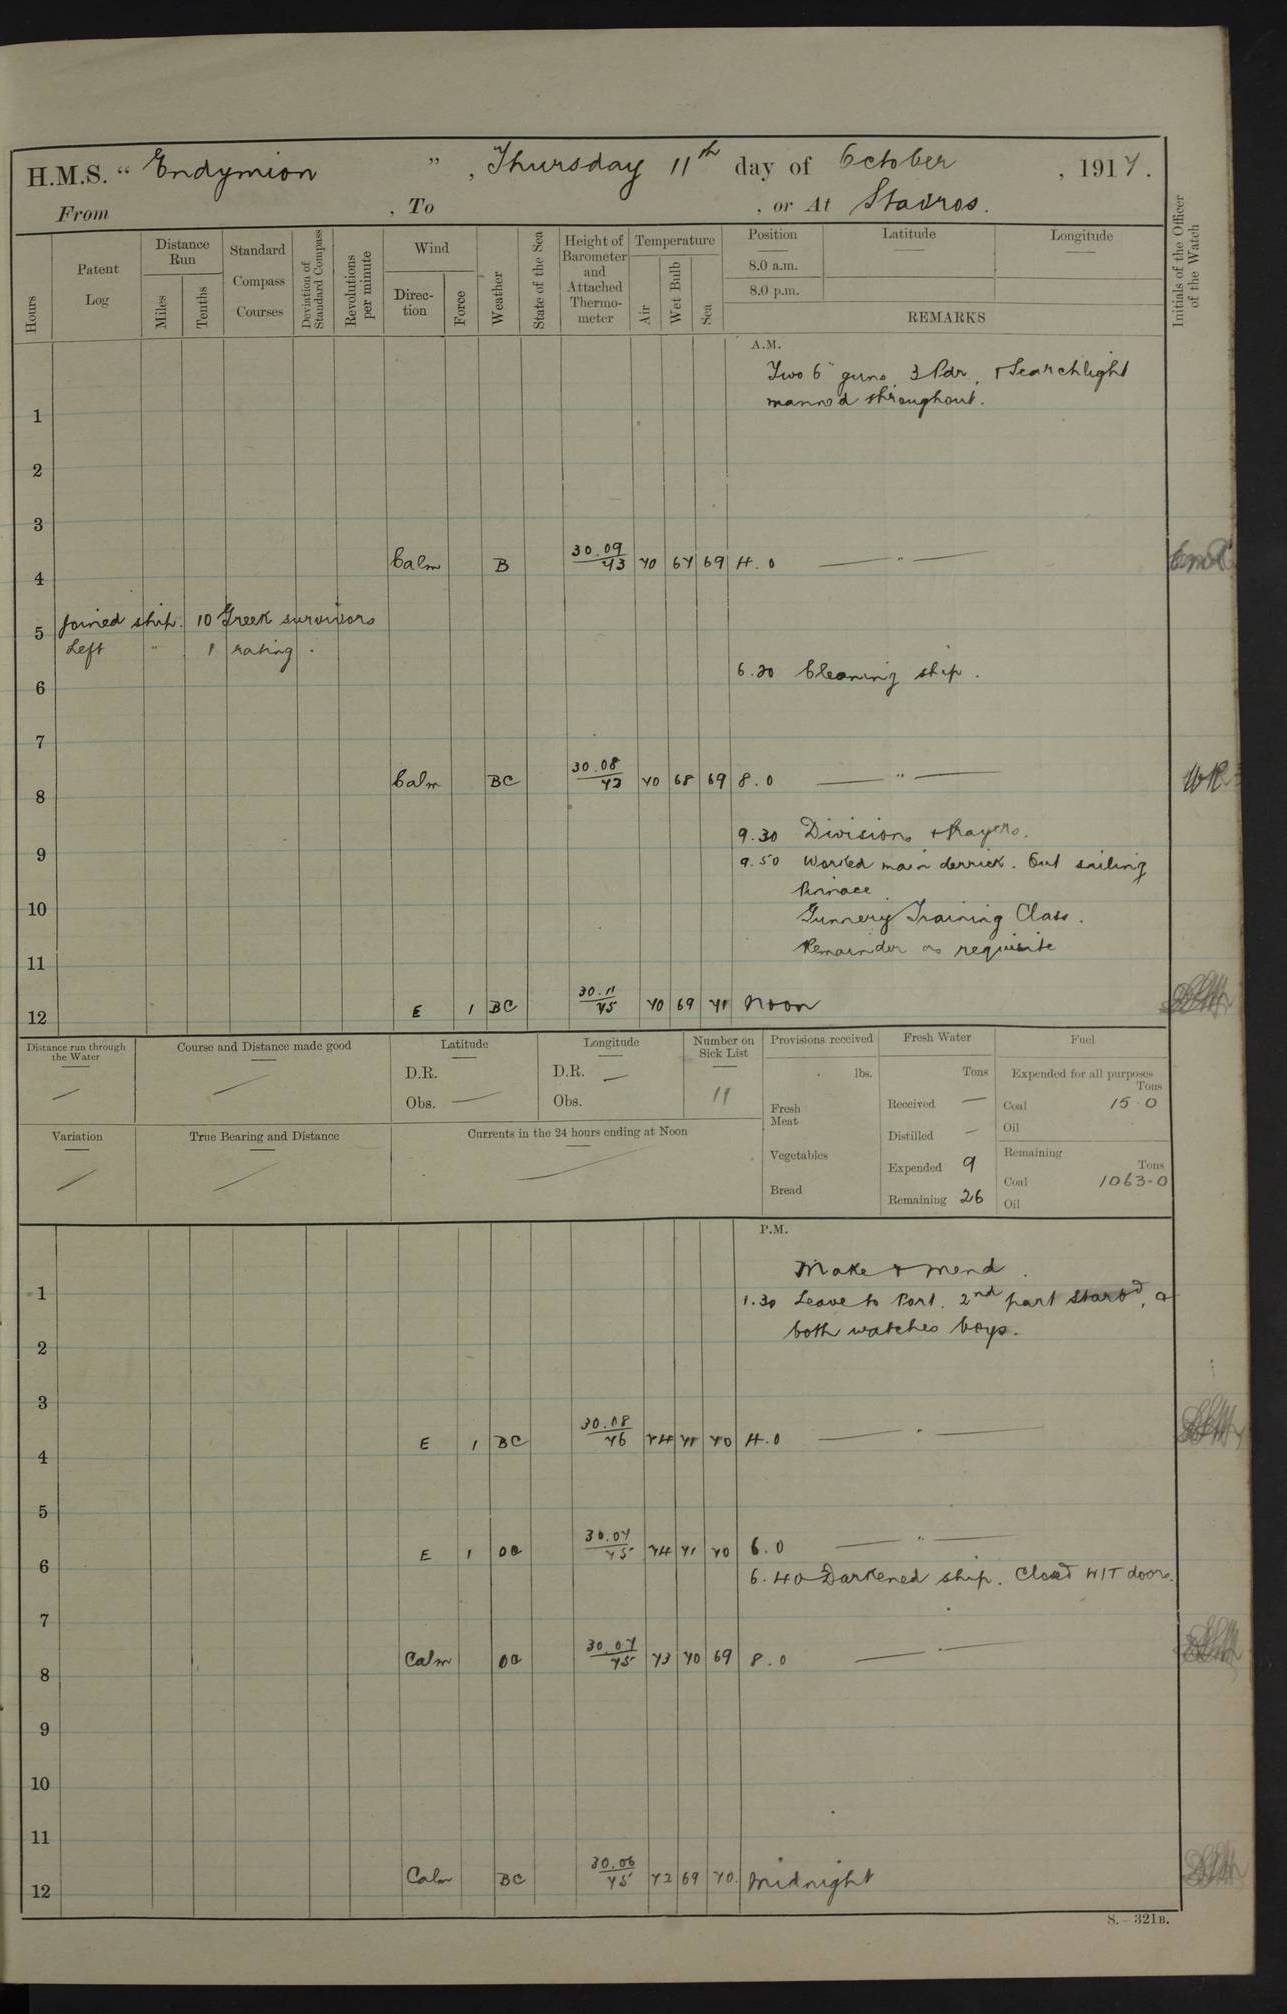 H.M.S. “ Endymion ” , Thursday 11th day of October , 1917.
From , To , or At Stavros.
Hours
Patent Log
Distance Run
Miles
Tenths
Standard Compass Courses
Deviation of Standard Compass
Revolutions per minute
Wind
Direc-tion
Force
Weather
State of the Sea
Height of Barometer and Attached Thermo-meter
Temperature
Air
Wet Bulb
Sea
Position
Latitude
Longitude
8.0 a.m.
8.0 p.m.
REMARKS
Initials of the Officer of the Watch
A.M.
Two 6" guns, 3 Pdr, & Searchlight
manned throughout.
1
2
3
4 Calm B 30.09/73 70 67 69 4.0 — " —
Joined ship. 10 Greek survivors
5
Left " 1 rating.
6.30 Cleaning ship.
6
7
8 Calm BC 30.08/73 70 68 69 8.0 — " —
9.30 Divisions & Prayers.
9
9.50 Worked main derrick. Out sailing
Pinnace
10 Gunnery Training Class.
Remainder as requisite
11
12 E 1 BC 30.11/75 70 69 71 Noon
Distance run through the Water
Course and Distance made good
Latitude
D.R.
Obs. —
Longitude
D.R. —
Obs.
Number on Sick List
11
Provisions received
lbs.
Fresh Meat
Vegetables
Bread
Fresh Water
Tons
Received —
Distilled —
Expended 9
Remaining 26
Fuel
Expended for all purposes
Tons
Coal 15.0
Oil
Remaining
Tons
Coal 1063.0
Oil
Variation
True Bearing and Distance
Currents in the 24 hours ending at Noon
P.M.
Make & mend.
1 1.30 Leave to Port. 2nd part Starbd, &
both watches boys.
2
3
4 E 1 BC 30.08/76 74 71 70 4.0 — " —
5
6 E 1 30.07/75 74 71 70 6.0 — " —
6.40 Darkened ship. Closed W/T doors.
7
8 Calm 30.07/75 73 70 69 8.0 — " —
9
10
11
12 Calm BC 30.06/75 72 69 70 Midnight
S.—321B.